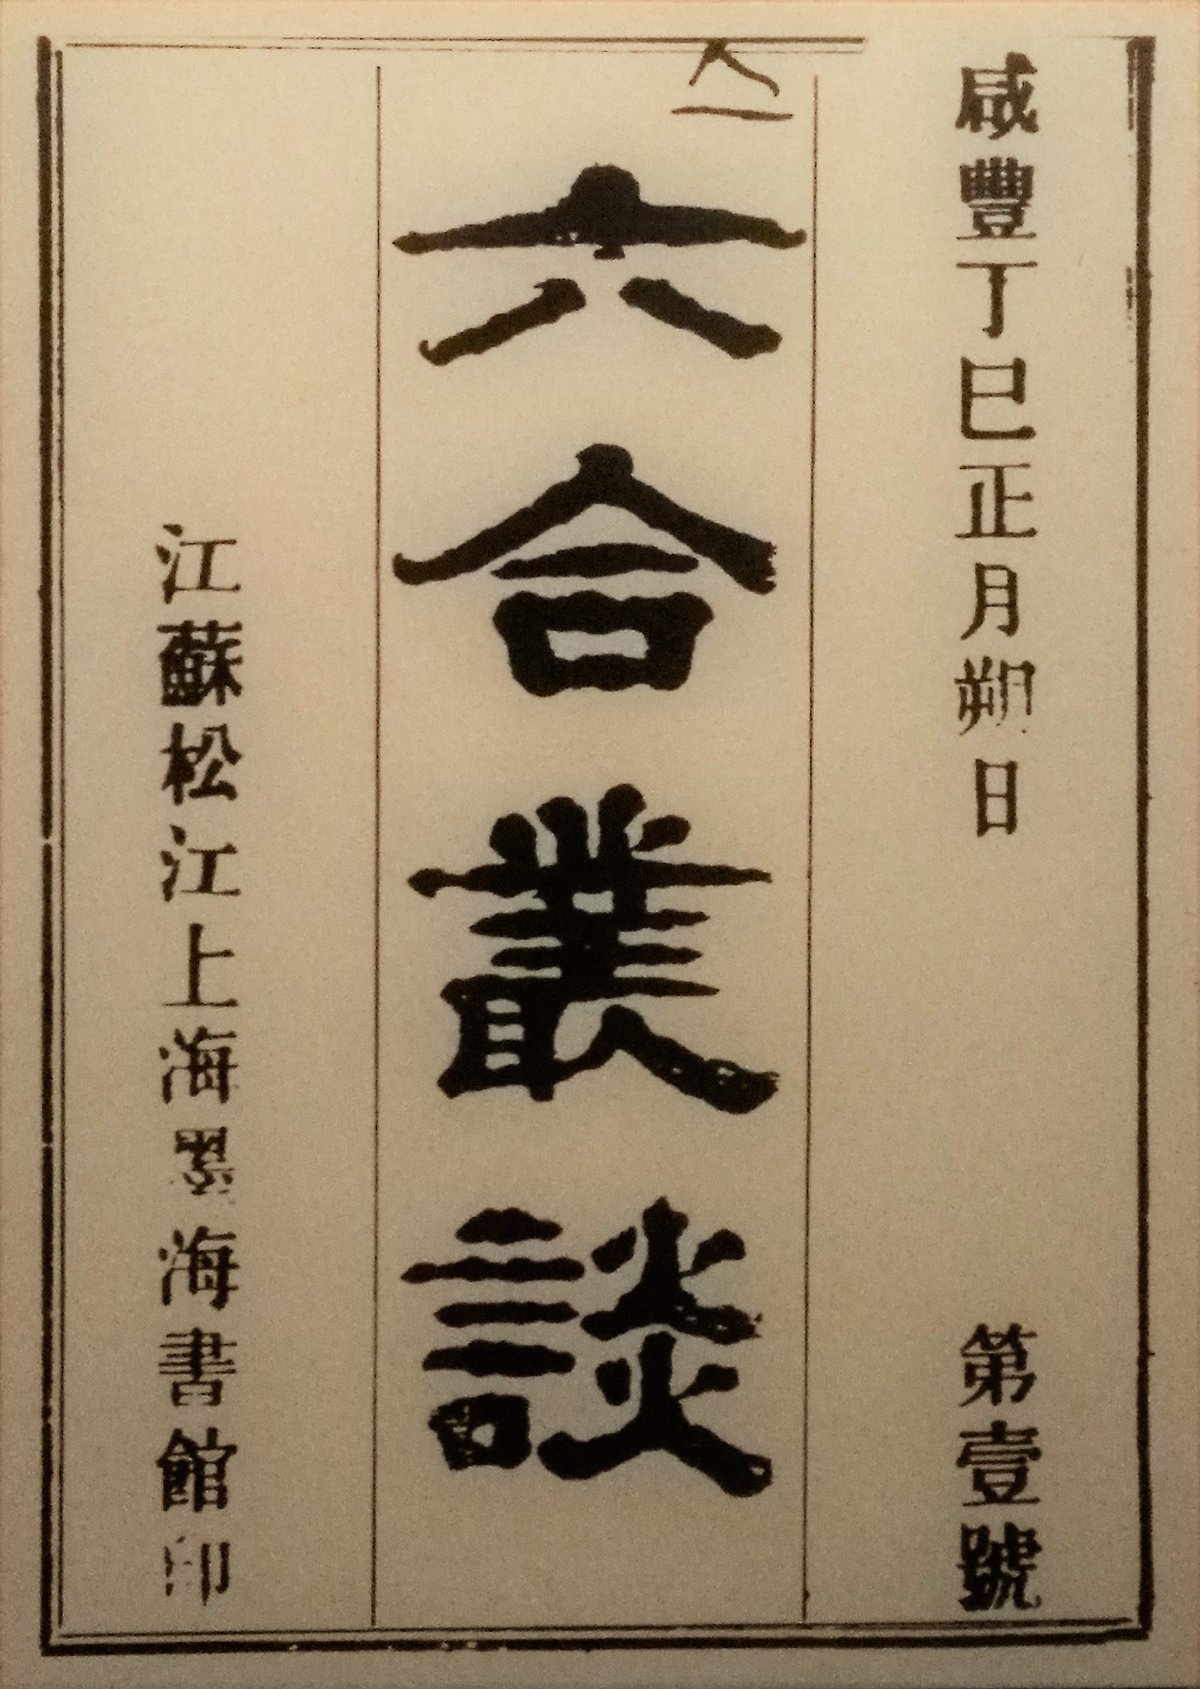 咸豐丁巳正月朔日 第壹號
六合叢談
江蘇松江上海墨海書館印